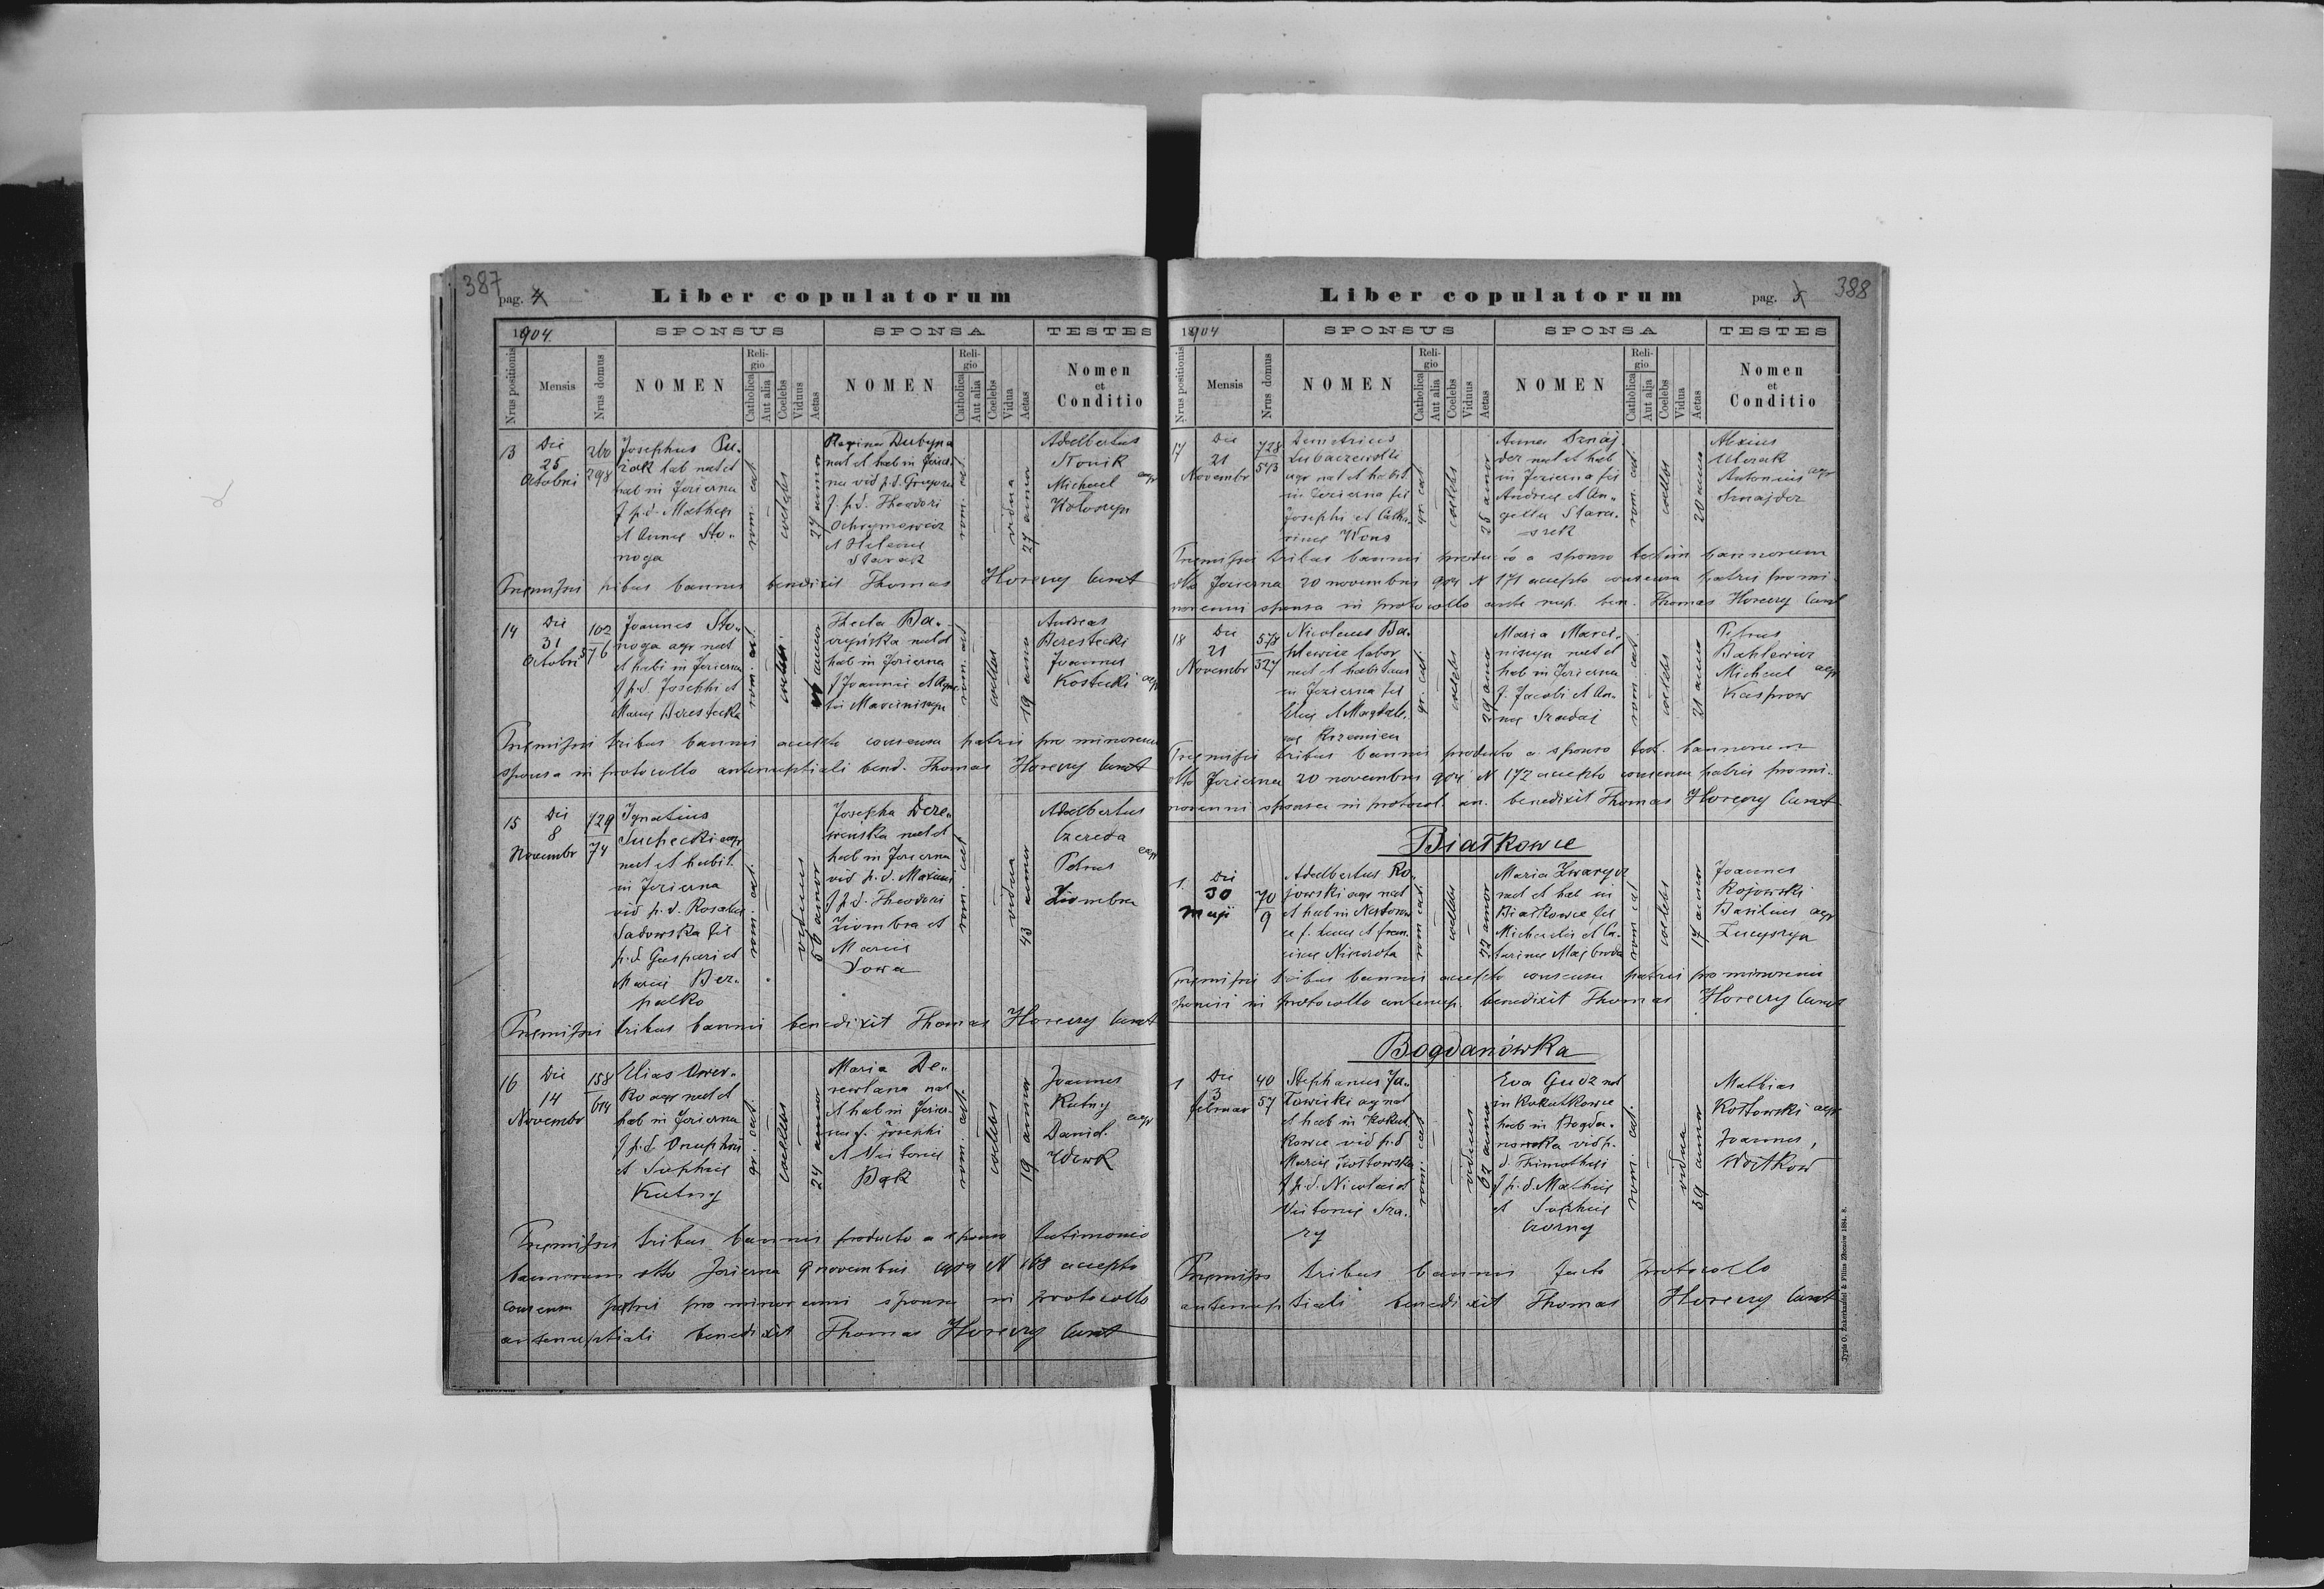 387
pag. 4
Liber copulatorum
1904
SPONSUS
SPONSA
TESTES
Nrus positionis
Mensis
Nrus domus
NOMEN
Religio
Catholica
Aut alia
Coelebs
Viduus
Aetas
NOMEN
Religio
Catholica
Aut alia
Coelebs
Vidua
Aetas
Nomen
et
Conditio
13
Die
25
Octobri
260
298
Josephus Pu-
żak lab nat et
hab in Jezierna
f p.d. Mathei
et Annae Sto-
noga
rom. cat
coelebs
27 annor
Regina Dubyna
nat et hab in Jezier
na vid p.d. Gregorii
f. p.d. Theodori
Ochrymowicz
et Helenae
rom. cat.
vidua
27 annor
Adalbertus
Michael agr
Praemissis tribus bannis benedixit Thomas Horeczy Curat
14
Die
31
Octobri
102
576
Joannes Sto-
noga agr nat
et habi in Jezierna
f p.d. Josephi et
Mariae Berestecka
rom. cat.
coelebs
Thecla Ba-
hab in Jezierna
f Joannis et Agne
tis Marciniszyn
rom. cat
coelebs
19 anno
Andreas
Berestecki
Joannes
Kostecki agr
Praemissis tribus bannis accepto consensu patris pro minorenni
sponsa in protocollo antenuptiali bened. Thomas Horeczy Curat
15
Die
8
Novembr
729
74
Ignatius
Suchecki agr
nat et habit.
in Jezierna
vid p.d. Rosaliae
Sadowska fil
p.d. Gaspari et
Mariae Ber-
palko
rom. cat.
viduus
56 annor
Josepha Dere-
wenska nat et
hab in Jezierna
vid p.d. Maximi
f p.d. Theodori
Ziombra et
Mariae
Sowa
rom. cat
vidua
43 annor
Adalbertus
Czereda
Petrus agr
Ziombra
Praemissis tribus bannis benedixit Thomas Horeczy Curat
16
Die
14
Novembr
158
614
Elias Over-
ko agr nat et
hab in Jezierna
f p.d. Onuphrii
et Sophiae
Kutny
gr. cat.
coelebs
24 annor
Maria De-
rewlana nat
et hab in Jezier-
na f. Josephi
et Victoriae
Bąk
rom. cat.
coelebs
19 annor
Joannes
Kutny agr
Daniel
Wowk
Praemissis tribus bannis producto a sponso testimonio
bannorum dtto Jezierna 9 novembris 1904 N 168 accepto
consensu patris pro minorenni sponsa in protocollo
antenuptiali benedixit Thomas Horeczy Curat
388
pag. 5
Liber copulatorum
1904
SPONSUS
SPONSA
TESTES
Nrus positionis
Mensis
Nrus domus
NOMEN
Religio
Catholica
Aut alia
Coelebs
Viduus
Aetas
NOMEN
Religio
Catholica
Aut alia
Coelebs
Vidua
Aetas
Nomen
et
Conditio
17
Die
21
Novembr
728
543
Demetrius
Lubaczewski
agr nat et habit
in Jezierna fil
Josephi et Catha-
rinae Wons
gr. cat
coelebs
25 annor
Anna Sznaj
der nat et hab
in Jezierna fil
Andreae et An-
gela Stara-
szek
rom. cat.
coelebs
20 anno
Alexius
Antonius agr
Sznajder
Praemissis tribus bannis producto a sponso testim bannorum
dtto Jezierna 20 novembris 904 N 171 accepto consensu patris pro mi-
norenni sponsa in protocollo ante nup. ben. Thomas Horeczy Curat
18
Die
21
Novembr
578
527
Nicolaus Ba-
hlewicz labor
nat et habitans
in Jezierna fil
Eliae et Magdale-
nae Krzemien
gr. cat.
coelebs
29 anno
Maria Marci-
niszyn nat et
hab in Jezierna
f. Jacobi et An-
nae Szadaj
rom. cat
coelebs
21 anno
Petrus
Bahlewicz
Michael agr
Kasprow
Praemissis tribus bannis producto a sponso test. bannorum
dtto Jezierna 20 novembris 904 N 172 accepto consensu patris pro mi-
norenni sponsa in protocol. an. benedixit Thomas Horeczy Curat
Białkowce
1
Die
30
Maji
70
9
Adalbertus Ro-
jowski agr nat
et hab in Nesterow
ce f. Lucae et Fran-
ciscae Niewrota
rom cat
coelebs
22 annor
Maria Zwarycz
nat et hab in
Białkowce fil
Michaelis et Ca-
tarinae Majbroda
rom cat
coelebs
17 annor
Joannes
Rojowski
Basilius agr
Praemissis tribus bannis accepto consensu patris pro minorenni
sponsi in protocollo antenup. benedixit Thomas Horeczy Curat
Bogdanówka
1
Die
3
februar
40
57
Stephanus Ja-
et hab in Kokut
kowce vid p.d
Mariae Kostowska
f p.d. Nicolai et
Victoriae Sza-
ry
rom. cat
viduus
62 anno
Eva Gudz nat
in Kokutkowce
hab in Bogda-
nowka vid p.
d. Thimothei
f p.d. Mathiae
et Sophiae
Czorny
rom. cat.
vidua
59 annor
Mathias
Kostowski agr
Joannes,
Wojtkow
Praemissis tribus bannis facto protocollo
antenuptiali benedixit Thomas Horeczy Curat
Typis O. Zukerkandel & Filius Złoczów 1884. 8.